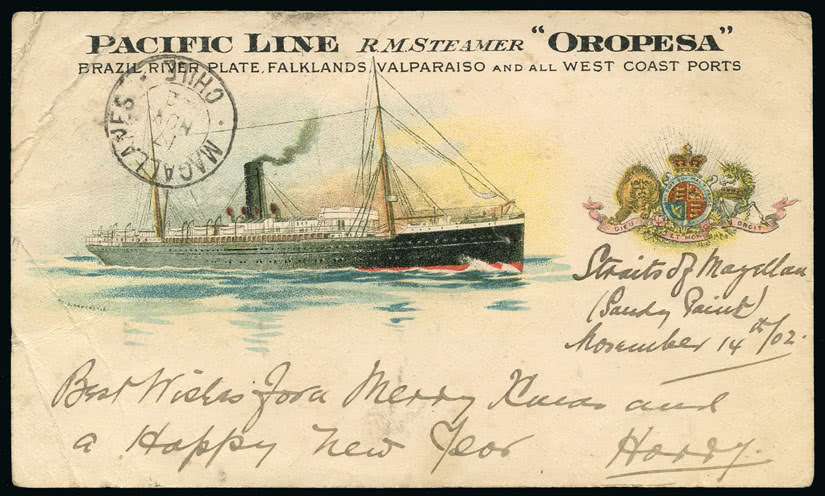 PACIFIC LINE R.M.STEAMER "OROPESA"
BRAZIL, RIVER PLATE, FALKLANDS, VALPARAISO AND ALL WEST COAST PORTS
MAGALLANES CHILE
NOV
DIEU ET MON DROIT
Straits of Magellan
(Sandy Point)
November 14th/02.
Best Wishes for a Merry Xmas and
a Happy New Year Harry.